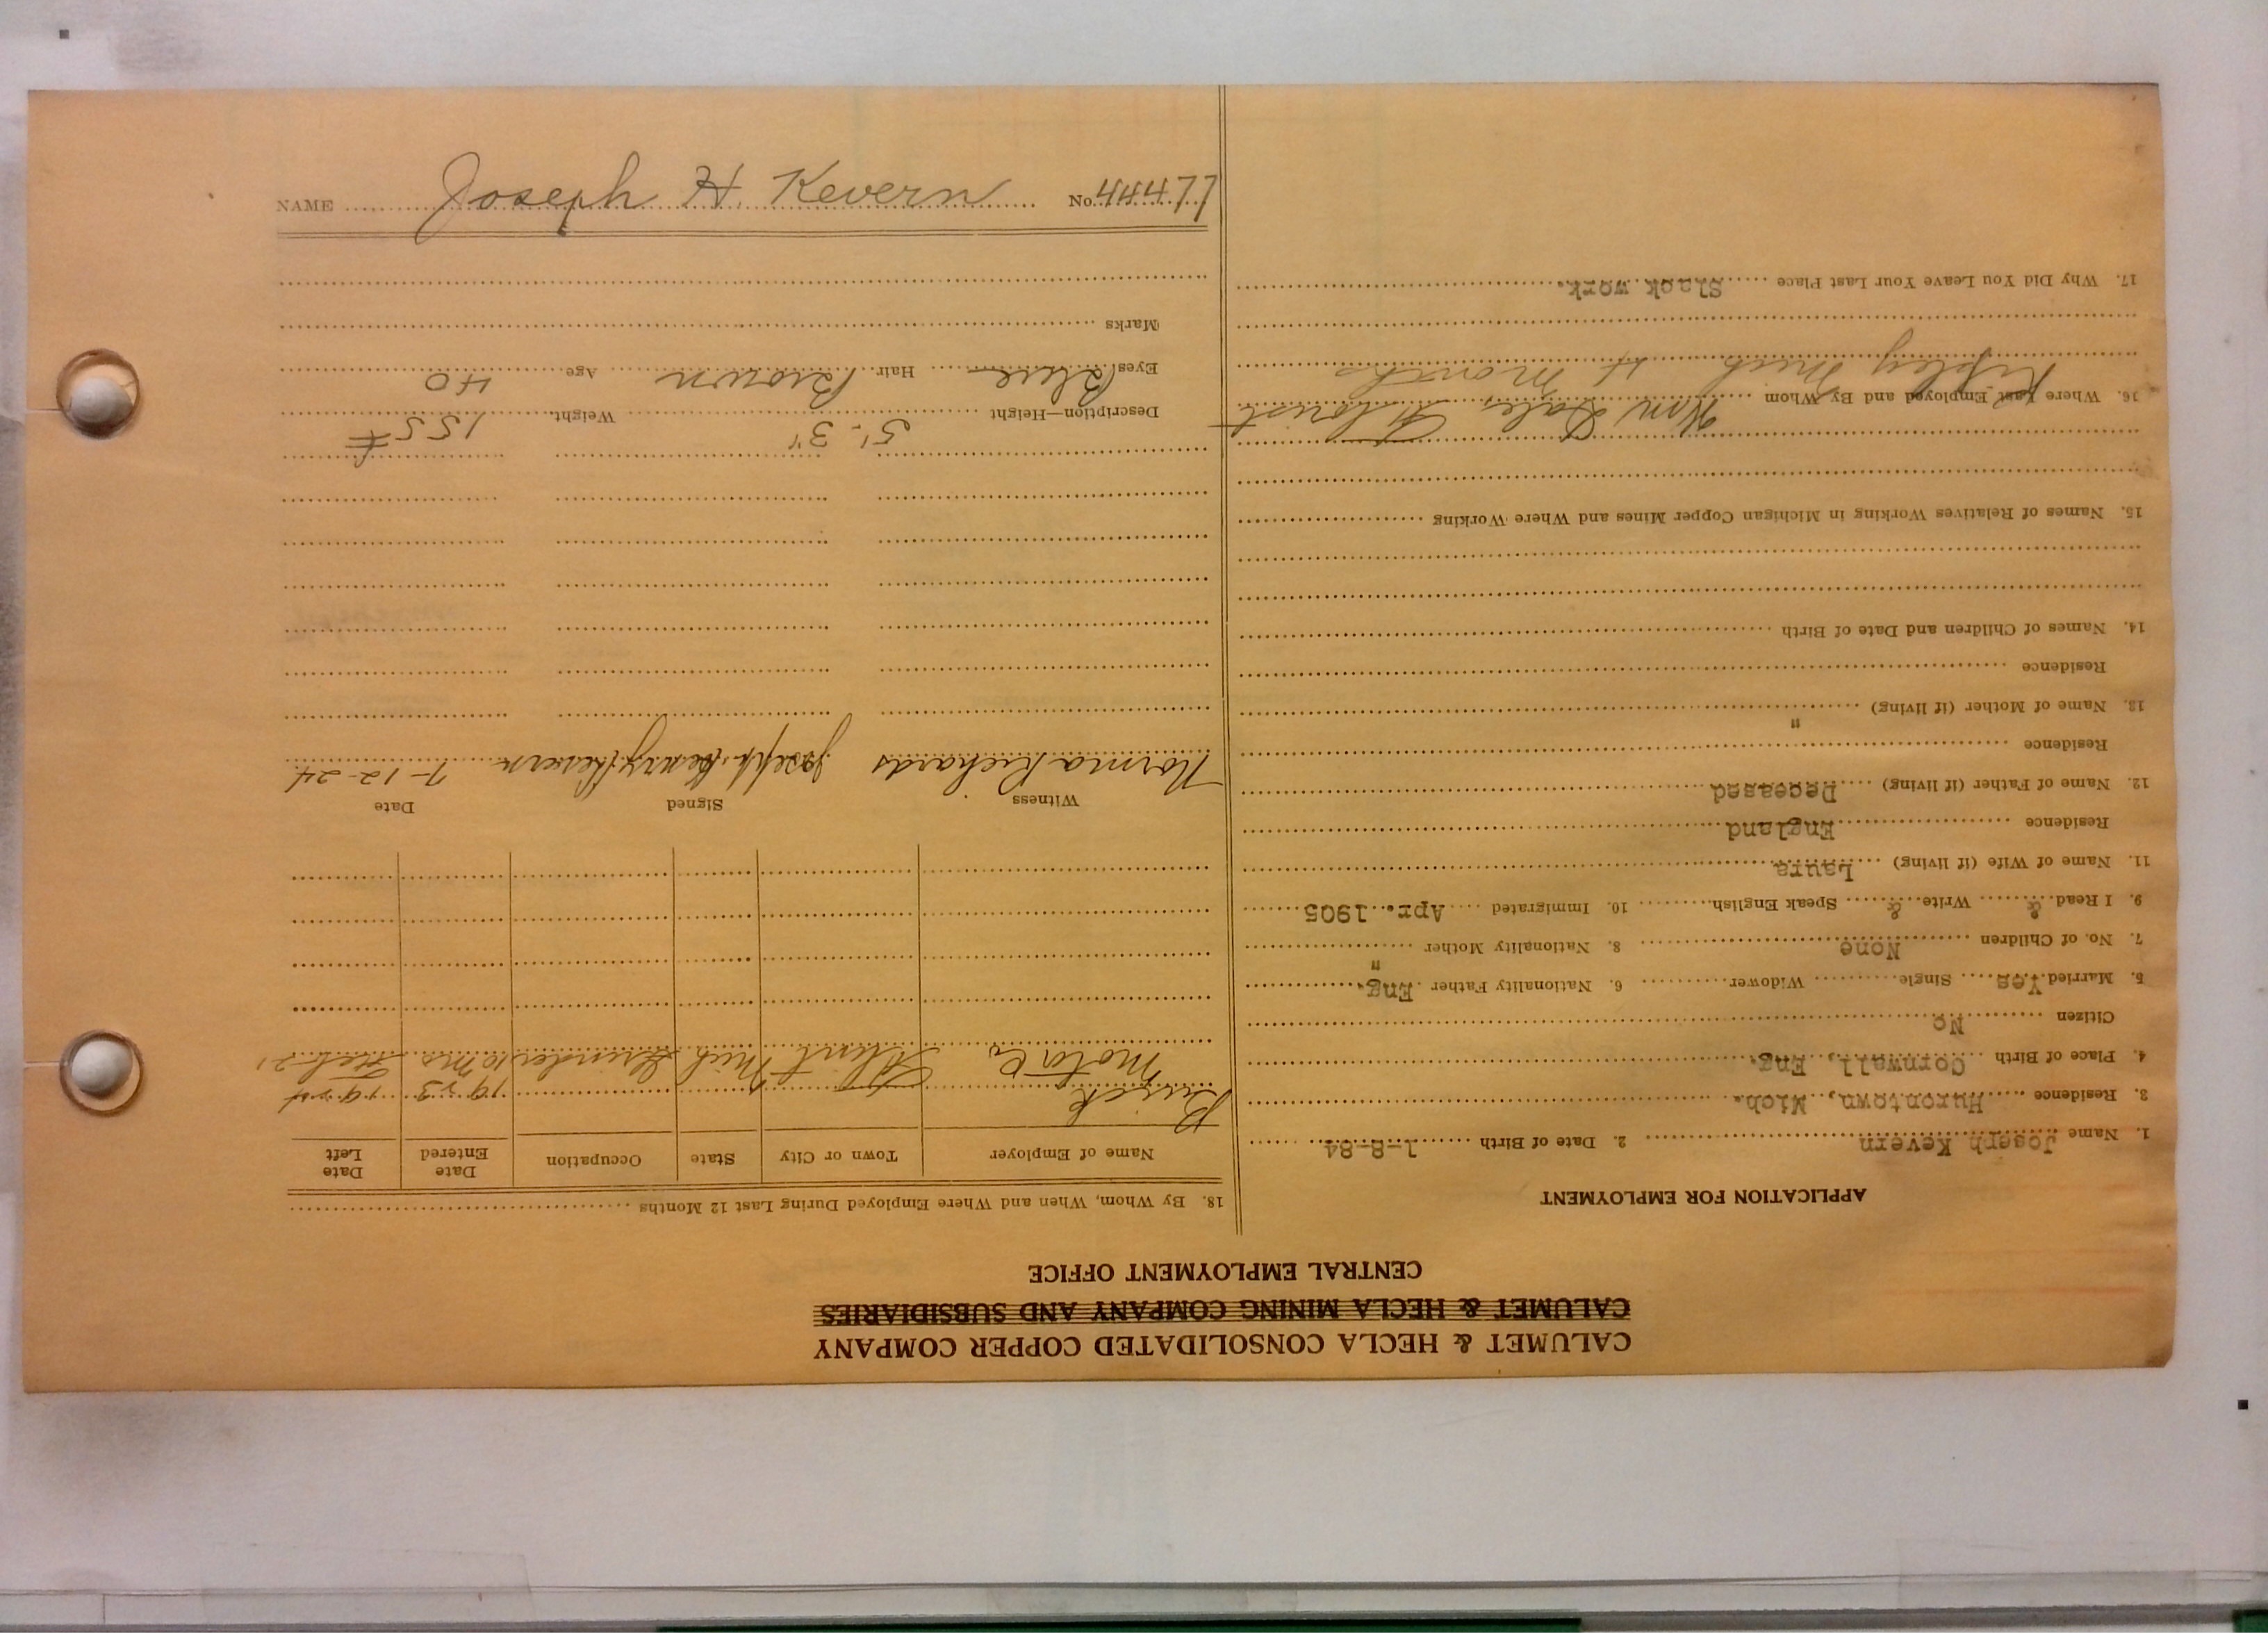 CALUMET & HECLA CONSOLIDATED COPPER COMPANY
CALUMET & HECLA MINING COMPANY AND SUBSIDIARIES
CENTRAL EMPLOYMENT OFFICE
APPLICATION FOR EMPLOYMENT
1. Name Joseph Kevern 2. Date of Birth 1-8-84
3. Residence Hurontown, Mich.
4. Place of Birth Cornwall, Eng.
Citizen No
5. Married Yes Single Widower 6. Nationality Father Eng.
7. No. of Children None 8. Nationality Mother "
9. I Read & Write & Speak English 10. Immigrated Apr. 1905
11. Name of Wife (if living) Laura
Residence England
12. Name of Father (if living) Deceased
Residence
13. Name of Mother (if living) "
Residence
14. Names of Children and Date of Birth
15. Names of Relatives Working in Michigan Copper Mines and Where Working
16. Where Last Employed and By Whom Wm Dale, Florist
Ripley Mich 4 Months
17. Why Did You Leave Your Last Place Slack work.
18. By Whom, When and Where Employed During Last 12 Months
Name of Employer Town or City State Occupation Date Entered Date Left
Buick 1923 1924
Motor Co, Flint Mich Mich Grinder 10 Mos Feb 21
Witness Signed Date
Norma Richards Joseph Henry Kevern 7-12-24
Description—Height 5'. 3" Weight 155#
Eyes Blue Hair Brown Age 40
Marks
NAME Joseph H. Kevern No. 44477